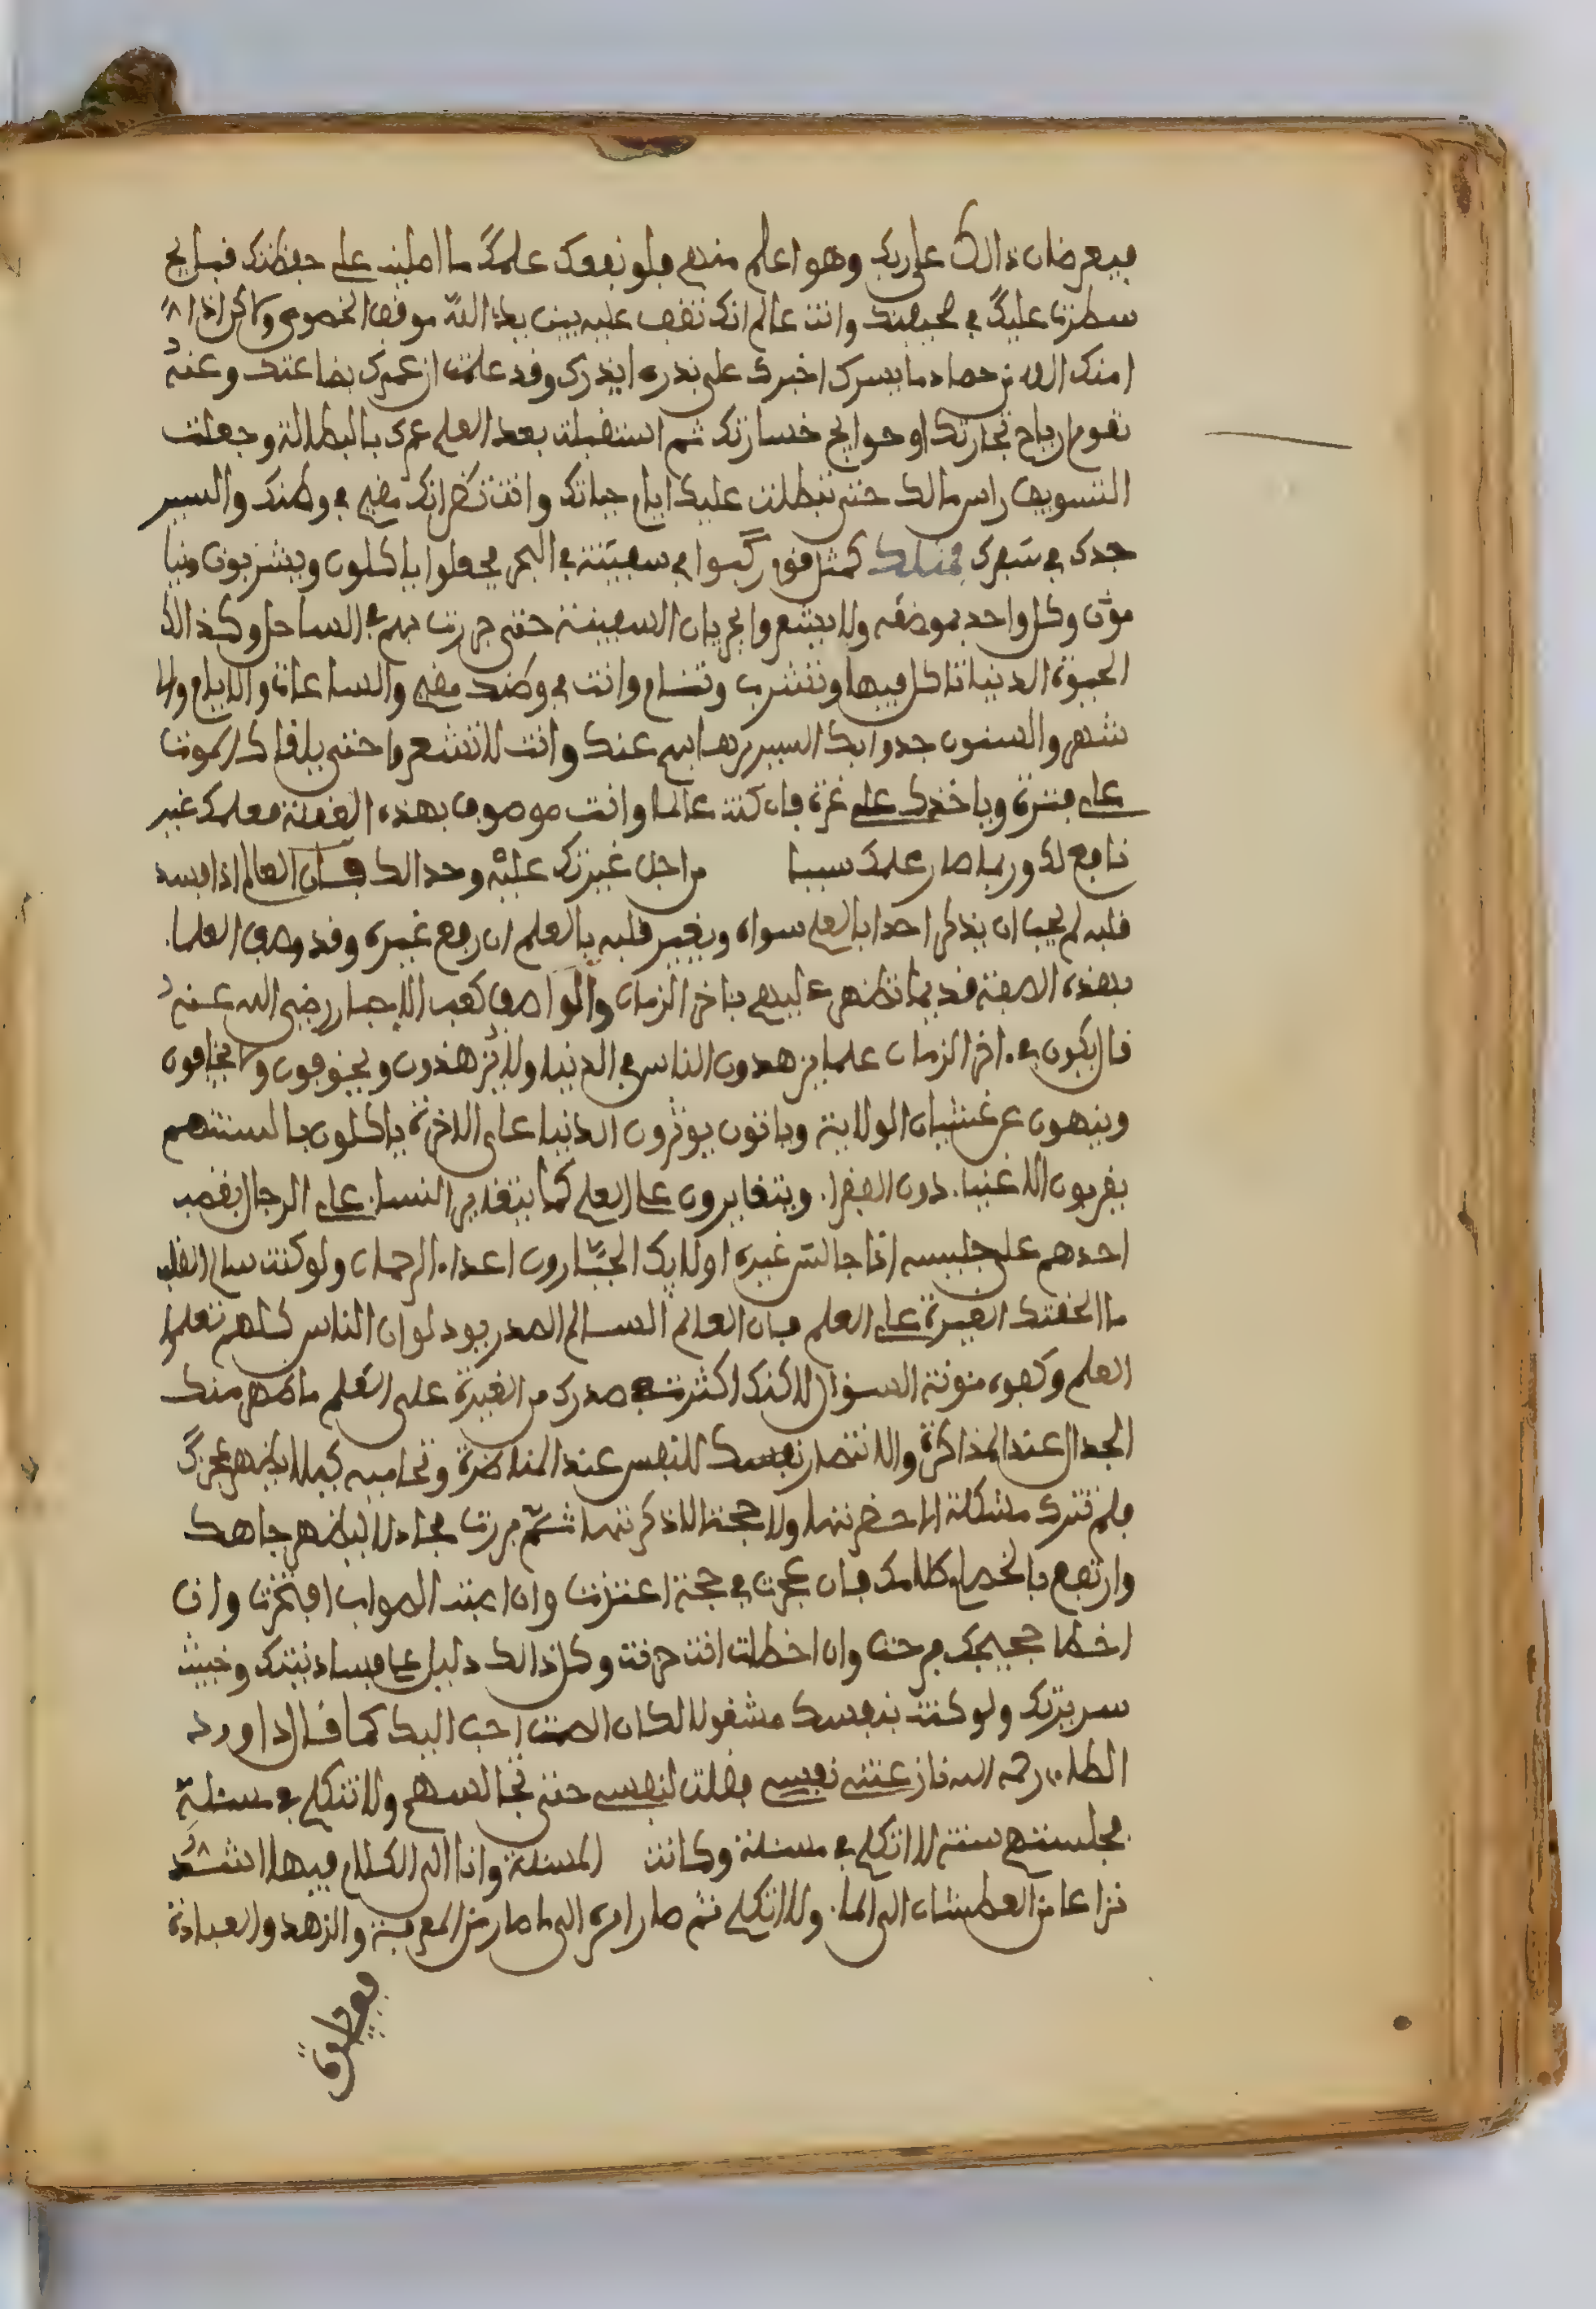 فيعرضان ذالك على ربك وهو اعلم منهم فلو نفعك علمك ما امليت على حفظتك قبايح
سطرت عليك في صحيفتك وانت عالم انك تقف عليه بين يدي الله موقف الخصوم ولاكن اذا
امنك الله من حصاد ما يسرك اخبرك على بذره ايذرك وقد علمت ان عمرك بضاعتك وعنه
تقوم ارباح تجارتك او حوايج خسارتك ثم استقبلت بعد العلم عمرك بالبطالة وجعلت
التسويف راس مالك حتى تبطلت عليك ايام حياتك وانت تظن انك مقيم في وطنك والسير
جدك في سفرك فمثلك كمثل قوم ركبوا في سفينة في البحر فجعلوا ياكلون ويشربون
وكل واحد بموضعه ولا يشعروا بجريان السفينة حتى جرت بهم على الساحل وكذالك
الحيوة الدنيا تاكل فيها وتشرب وتنام وانت في وطنك مقيم والساعات والايام والا
شهر والسنون جدوا بك السير وانت لا تشعر حتى يلقاك الموت
على فترة وياخذك على غرة فان كنت عالما وانت موصوف بهذه الغفلة فعلمك غير
نافع لك وربما صار علمك سببا من اجل غيرتك عليه وحدالك فان العالم اذا فسد
قلبه لم يحب ان يذكر احدا بالعلم سواه ويغير قلبه بالعلم ان رفع غيره وقد وصف العلماء
بهذه الصفة قديما تظهر عليهم باخر الزمان والواصف كعب الاحبار رضي الله عنه
قال يكون في اخر الزمان علما يزهدون الناس في الدنيا ولا يزهدون ويخوفون ولا يخافون
وينهون عن غشيان الولاية وياتون يوثرون الدنيا على الاخرة ياكلون بالسنتهم
يقربون الاغنياء دون الفقراء ويتغايرون على العلم كما يتغاير النساء على الرجال يغضب
احدهم على جليسه اذا جالس غيره اولايك الجبارون اعداء الرحمان ولو كنت سالم القلب
ما الحقتك الغيرة على العلم فان العالم السالم الصدر يود لو ان الناس كلهم تعلموا
العلم وكفوه مئونة السؤال لاكنك اكثرت صدرك من الغيرة على العلم ما ظهر منك
الجدال عند المذاكرة والانتصار نفسك للنفس عند المناضرة وتحاميه كيلا يظهر عجزك
فلم تترك مشكلة الا حضرتها ولا حجة الا ذكرتها ثم مررت مجادلا ليظهر جاهك
وارتفع بالخصام كلامك فان عجزت في حجة اعتزت وان اصبت الصواب افتخرت وان
اخطا حجيجك فرحت وان اخطات انت حزنت وكل ذالك دليل على فساد نيتك وخبيث
سريرتك ولو كنت بنفسك مشغولا لكان الصمت احب اليك كما قال داوود
الطاءي رحمه الله نازعتني نفسي فقلت لنفسي حتى تجالسهم ولا تتكلم في مسئلة
فجلستهم سنة لا اتكلم في مسئلة وكانت المسئلة وانا الى الكلام فيها اشد
نزاعا من العطشان الى الماء ولا اتكلم ثم صار امره الى ما صار من المعرفة والزهد والعبادة